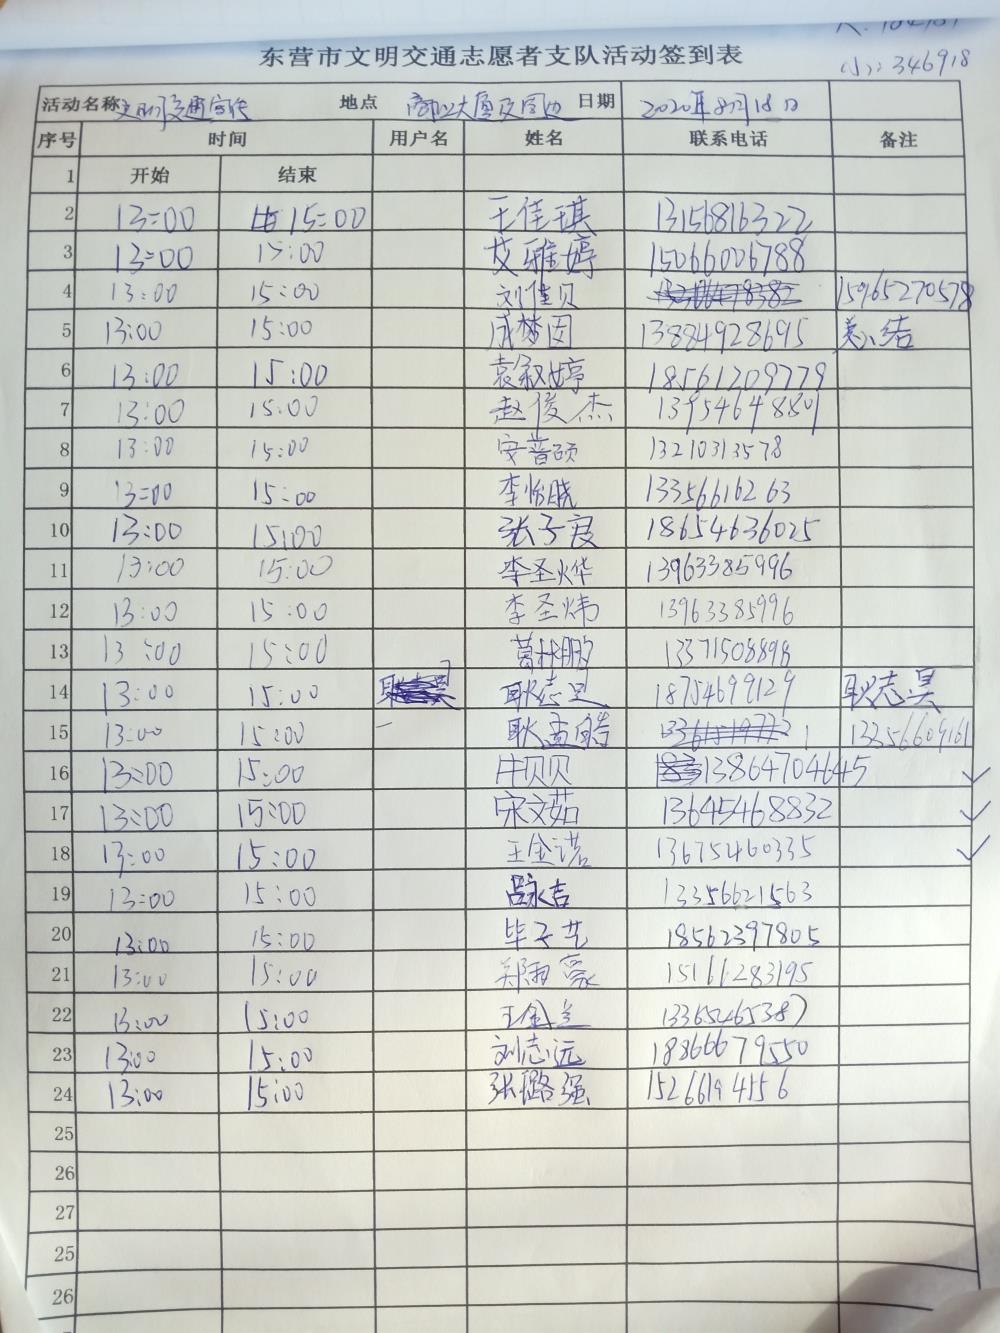 小: 346918
东营市文明交通志愿者支队活动签到表
活动名称 文明交通宣传 地点 商业大厦及周边 日期 2020年8月18日
序号 时间 用户名 姓名 联系电话 备注
1 开始 结束
2 13:00 15:00 王佳琪 13156816322
3 13:00 15:00 艾雅婷 15066006788
4 13:00 15:00 刘佳贝 15965270578
5 13:00 15:00 成梦因 13884928695 总结
6 13:00 15:00 袁叙婷 18561209779
7 13:00 15:00 赵俊杰 13954648801
8 13:00 15:00 安普硕 13210313578
9 13:00 15:00 李怡晓 13356616263
10 13:00 15:00 张子良 18654636025
11 13:00 15:00 李圣烨 13963385996
12 13:00 15:00 李圣炜 13963385996
13 13:00 15:00 葛林鹏 13371508898
14 13:00 15:00 耿志昊 18754699129 耿志昊
15 13:00 15:00 耿孟皓 13356609161
16 13:00 15:00 牛贝贝 13864704645
17 13:00 15:00 宋文茹 13645468832
18 13:00 15:00 王金诺 13675460335
19 13:00 15:00 吕永吉 13356621563
20 13:00 15:00 毕子艺 18562397805
21 13:00 15:00 郑雨豪 15166283195
22 13:00 15:00 王金兰
23 13:00 15:00 刘志远 18866679550
24 13:00 15:00 张璐强 15266194156
25
26
27
25
26